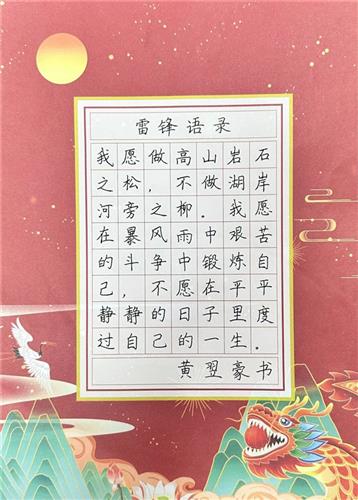 雷锋语录
我愿做高山岩石
之松，不做湖岸
河旁之柳．我愿
在暴风雨中艰苦
的斗争中锻炼自
己，不愿在平平
静静的日子里度
过自己的一生．
黄翌豪书